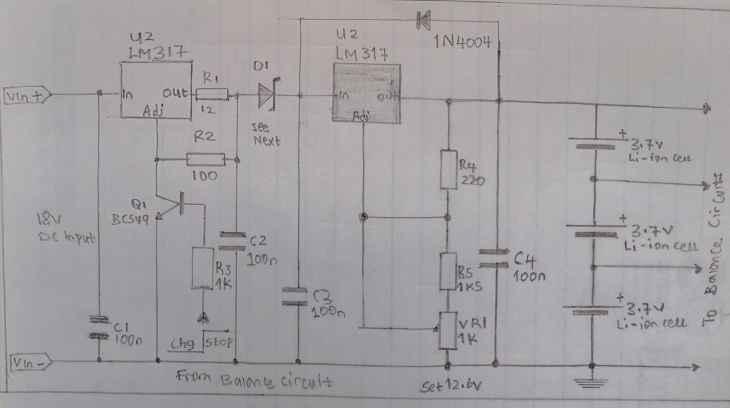 U2
LM317
In
Out
Adj
R1
12
D1
See
Next
U2
LM317
in
out
Adj
1N4004
Vin+
R2
100
Q1
BC549
R3
1K
C2
100n
18V
DC Input
C1
100n
Chg
Stop
C3
100n
R4
220
R5
1K5
VR1
1K
C4
100n
+
3.7V
Li-ion cell
+
3.7V
Li-ion cell
+
3.7V
Li-ion cell
To Balance Circuit
Vin-
From Balance Circuit
Set 12.6V